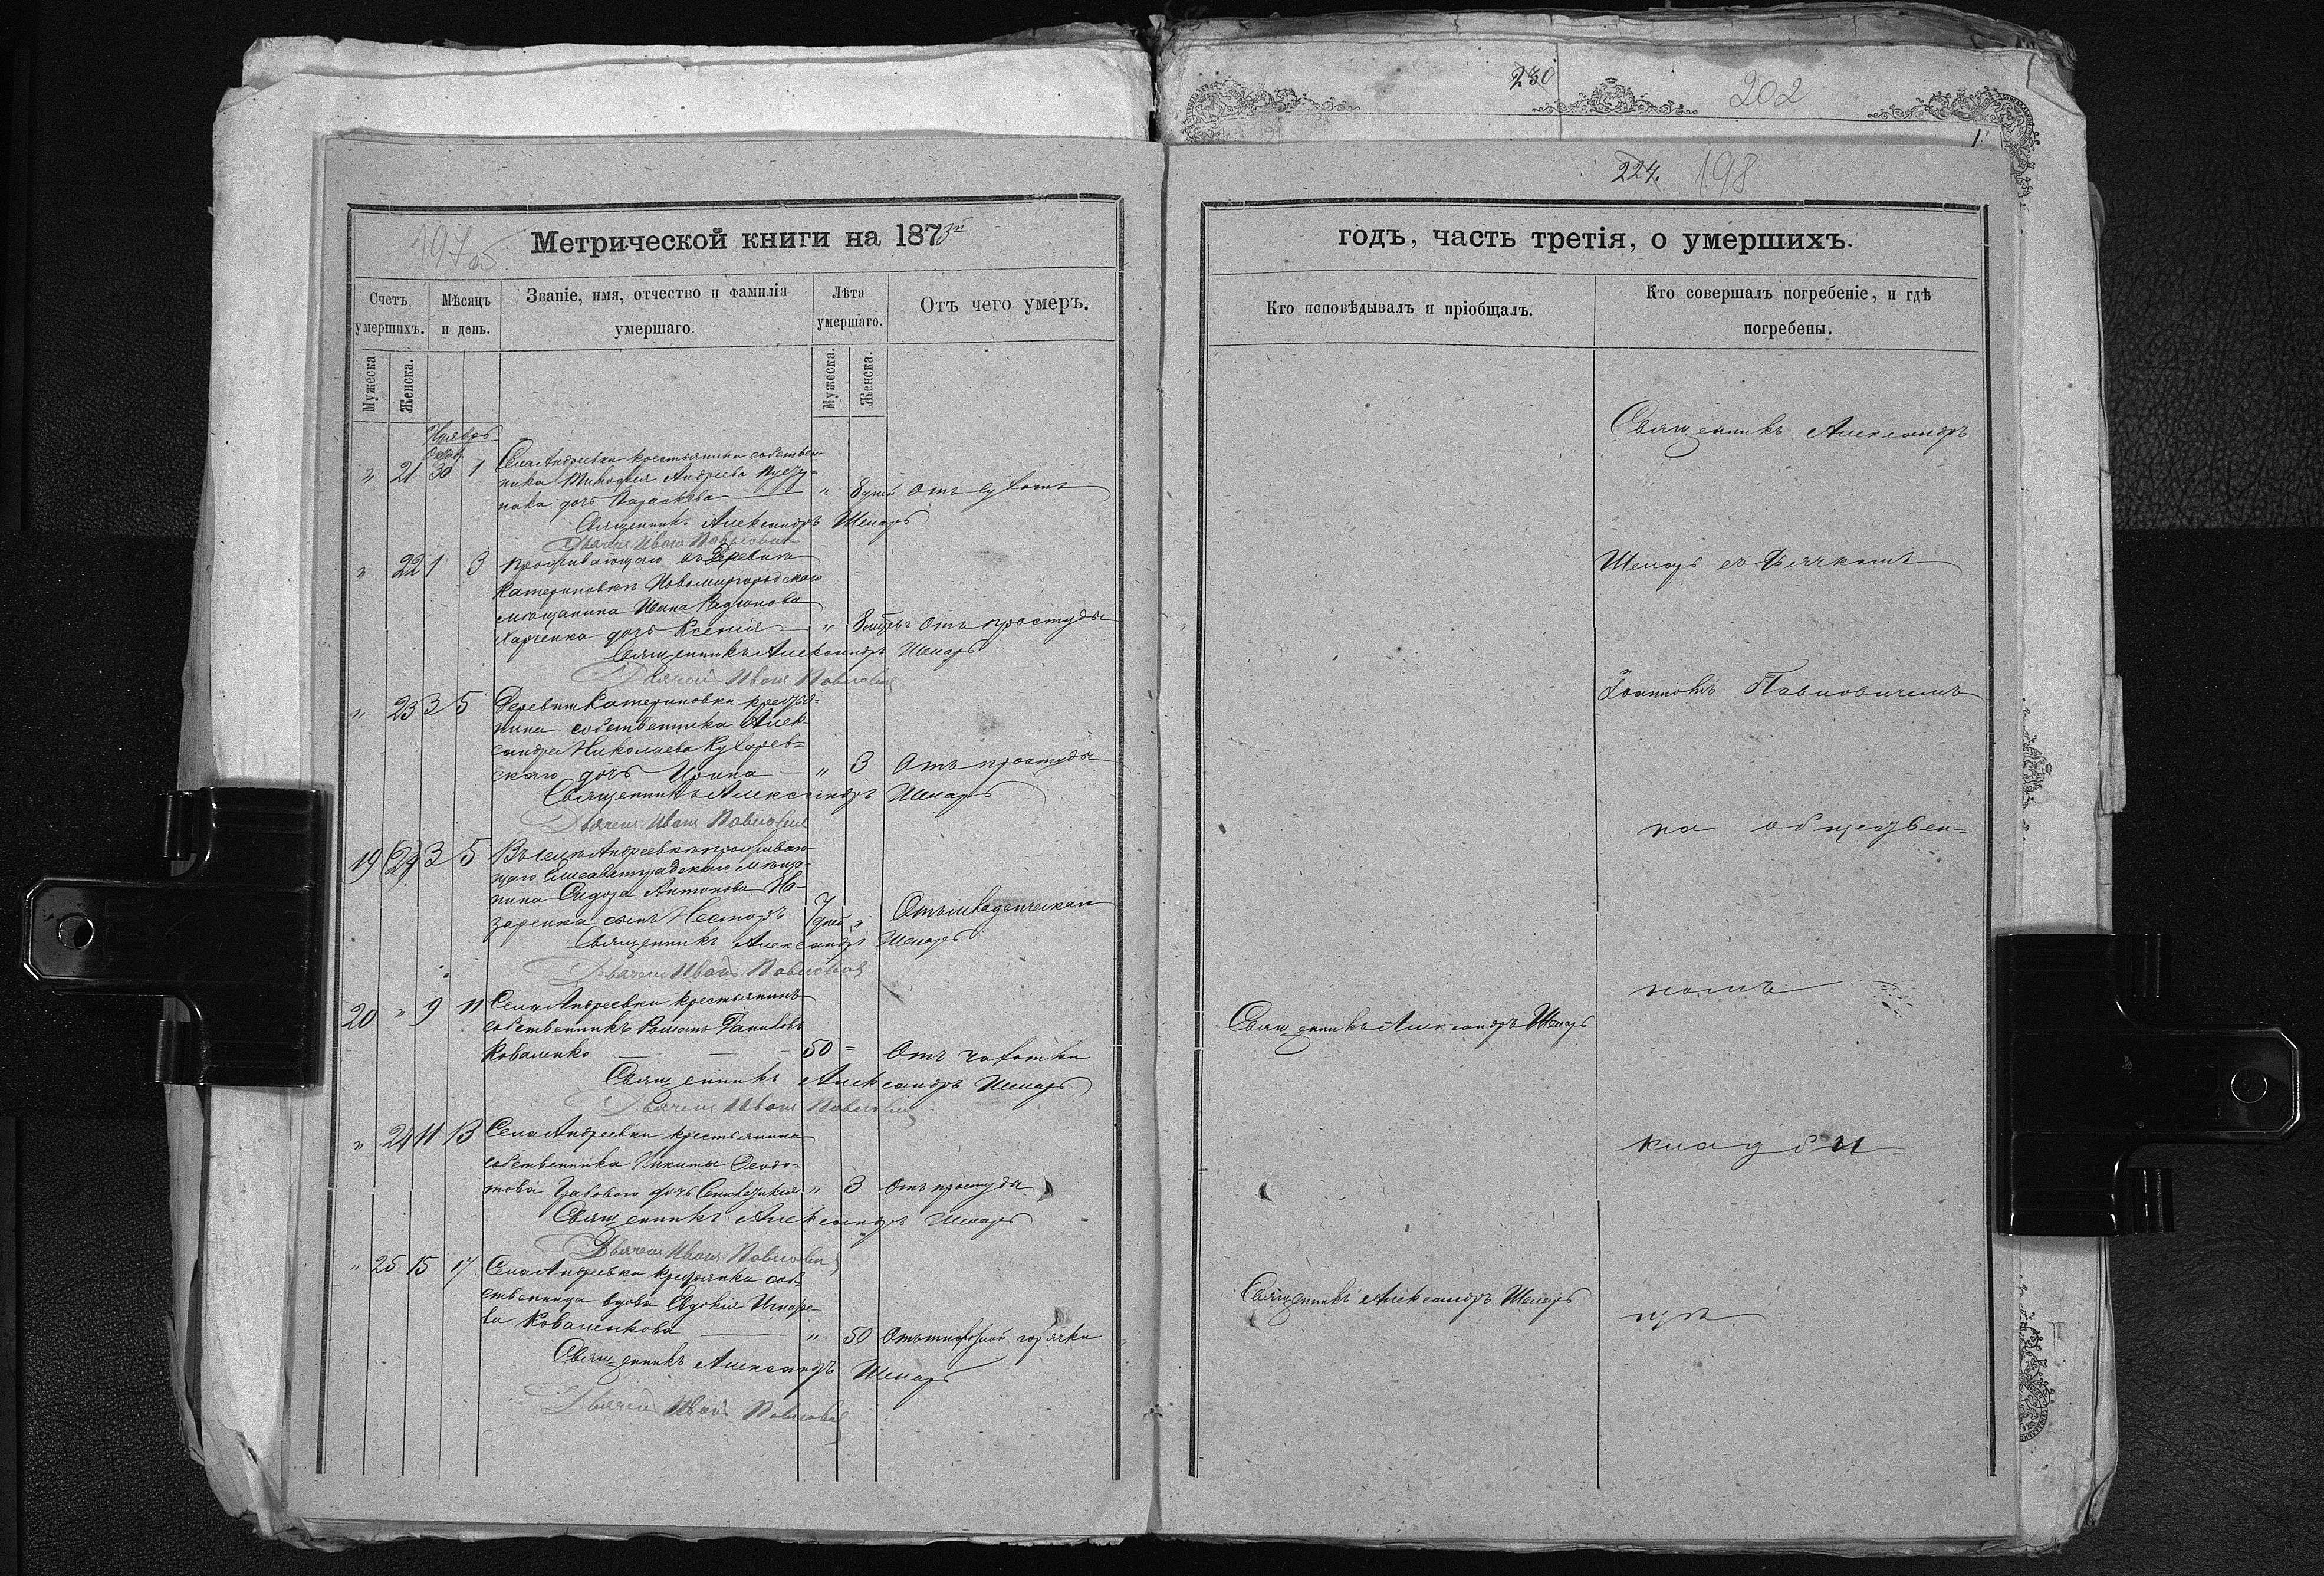 230
202
224. 198
197 об
Метрической книги на 1873й
годъ, часть третія, о умершихъ.
Счетъ умершихъ.
Мѣсяцъ и день.
Званіе, имя, отчество и фамилія умершаго.
Лѣта умершаго.
Отъ чего умеръ.
Кто исповѣдывалъ и пріобщалъ.
Кто совершалъ погребеніе, и гдѣ погребены.
Мужеска.
Женска.
Мужеска.
Женска.
Ноябрь
" 21 30 1 Села Андреевки крестьянина собствен-
ника Андреева
дочь Параскева — " 8 дней Отъ
Священникъ Александръ Шепарь
Дьячекъ Иванъ Павловичъ
" 22 1 3 Проживающаго въ Деревни
Катериновкѣ Новомиргородскаго
мѣщанина Ивана Родіонова
Харченка дочь Ксенія — " 8 Отъ простуды
Священникъ Александръ Шепарь
Дьячекъ Иванъ Павловичъ
" 23 3 5 Деревни Катериновки крестья-
нина собственника Алек-
сандра Николаева Кухарев-
скаго дочь Ирина — " 3 Отъ простуды
Священникъ Александръ Шепарь
Дьячекъ Иванъ Павловичъ
19 3 5 Въ селѣ Андреевкѣ проживаю-
щаго Елисаветградскаго мѣща-
нина Сидора Антонова На-
заренка сынъ Несторъ 7 дней " Отъ младенческой
Священникъ Александръ Шепарь
Дьячекъ Иванъ Павловичъ
20 " 9 11 Села Андреевки крестьянинъ
собственникъ Романъ Даниловъ
Коваленко — — — 50 = Отъ чахотки
Священникъ Александръ Шепарь
Дьячекъ Иванъ Павловичъ
" 24 11 13 Села Андреевки крестьянина
собственника Никиты Ѳеодо-
това дочь " 3 Отъ простуды
Священникъ Александръ Шепарь
Дьячекъ Иванъ Павловичъ
" 25 15 17 Села Андреевки крестьянка соб-
ственница вдова Евдокія
Коваленкова — " 50 Отъ тифозной горячки
Священникъ Александръ Шепарь
Дьячекъ Иванъ Павловичъ
Священникъ Александръ Шепарь
Священникъ Александръ Шепарь
Священникъ Александръ
Шепарь съ Дьячкомъ
Іоанномъ Павловичемъ
на обществен-
номъ
кладби-
щѣ.